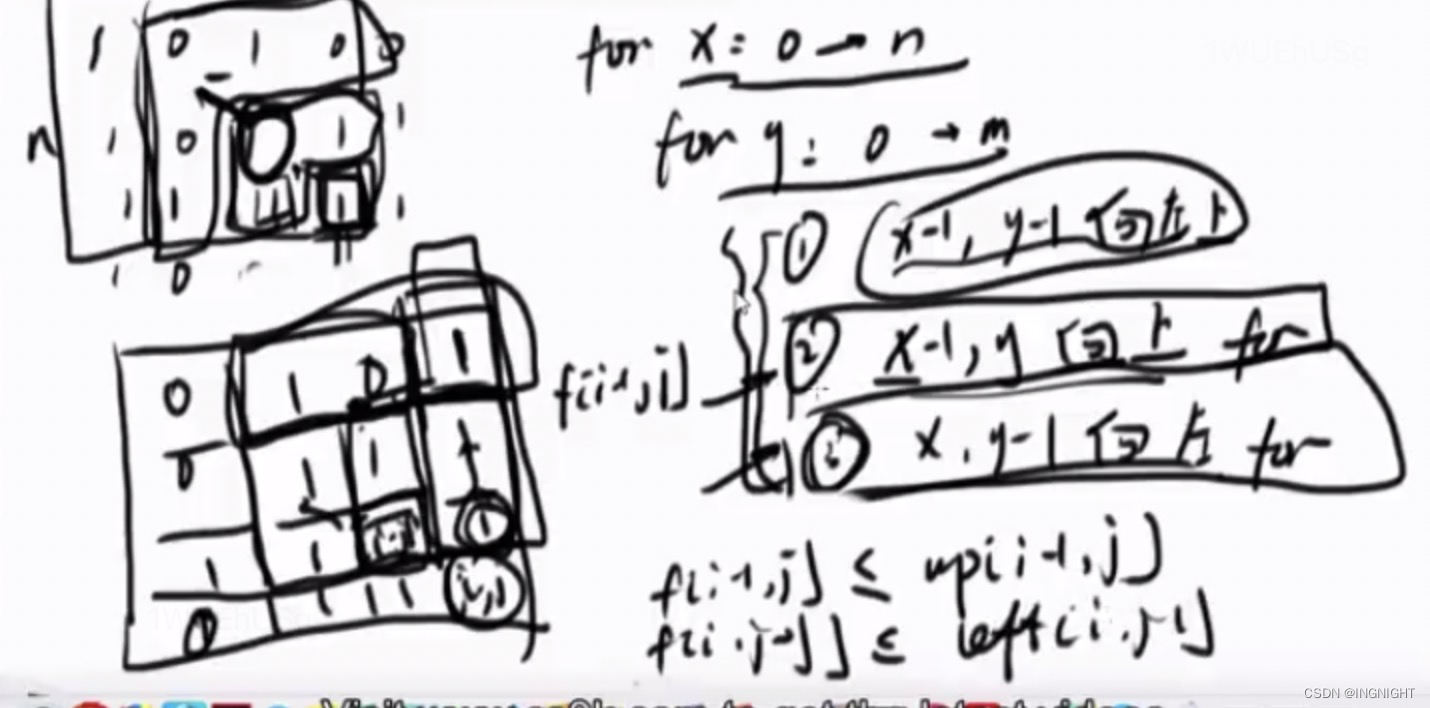 1 0 1 0 0
n 1 0 1 1
1 1 1 1 1
1 0
for x: 0 → n
for y: 0 → m
① x-1, y-1 向左上
② x-1, y 向上 for
③ x, y-1 向左 for
f[i-1,j]
0 1 0 1
0 1 1 1
1 1 1
0 1 1 1 i,j
f[i-1,j] ≤ up[i-1,j]
f[i,j-1] ≤ left[i,j-1]
CSDN @INGNIGHT